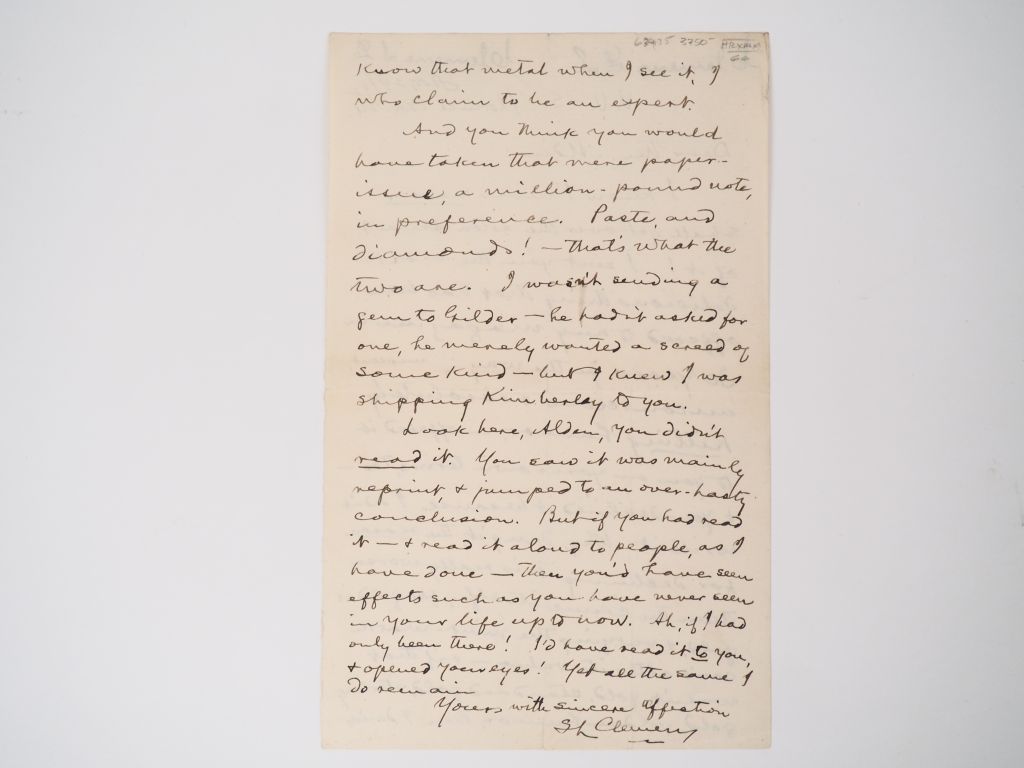 63975 3750-
Know that metal when I see it, I
who claim to be an expert.
And you think you would
have taken that mere paper-
issue, a million-pound note,
in preference. Paste, and
diamonds! — that's what the
two are. I wasn't sending a
gem to Gilder — he hadn't asked for
one, he merely wanted a screed of
some kind — but I knew I was
shipping Kimberley to you.
Look here, Alden, you didn't
read it. You saw it was mainly
reprint, & jumped to an over-hasty
conclusion. But if you had read
it — & read it aloud to people, as I
have done — then you'd have seen
effects such as you have never seen
in your life up to now. Ah, if I had
only been there! I'd have read it to you,
& opened your eyes! Yet all the same I
do remain
Yours with sincere affection
SL Clemens